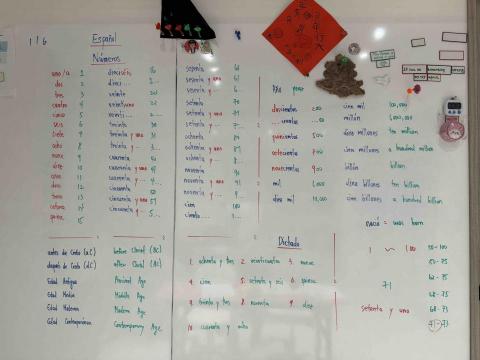 1/6
Español
Números
uno/a 1
dos 2
tres 3
cuatro 4
cinco 5
seis 6
siete 7
ocho 8
nueve 9
diez 10
once 11
doce 12
trece 13
catorce 14
quince 15
dieciséis 16
dieci...
veinte 20
veintiuno 21
veinti...
treinta 30
treinta y uno 31
treinta y ...
cuarenta 40
cuarenta y uno 41
cuarenta y ...
cincuenta 50
cincuenta y uno 51
cincuenta y ... 5...
sesenta 60
sesenta y uno 61
sesenta y ... 6...
setenta 70
setenta y uno 71
setenta y ... 7...
ochenta 80
ochenta y uno 81
ochenta y ... 8...
noventa 90
noventa y uno 91
noventa y ... 9...
cien 100
ciento...
doscientos 200
...cientos ...00
quinientos 500
setecientos 700
novecientos 900
mil 1,000
diez mil 10,000
cien mil 100,000
millón 1,000,000
diez millones ten million
cien millones a hundred million
billón billion
diez billones ten billion
cien billones a hundred billion
nació = was born
antes de Cristo (a.C) before Christ (BC)
después de Cristo (d.C) after Christ (AC)
Edad Antigua Ancient Age
Edad Media Middle Age
Edad Moderna Modern Age
Edad Contemporánea Contemporary Age
Dictado
1. ochenta y tres 2. veinticuatro 3. nueve
4. cien 5. setenta y seis 6. quince
7. treinta y dos 8. noventa 9. diez
10. cuarenta y ocho
1 ~ 100
71
setenta y uno
50-100
50-75
62-75
68-75
68-73
71-73